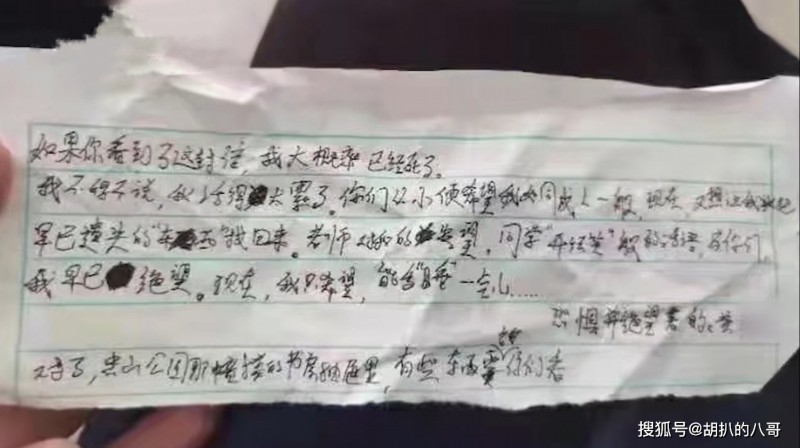 如果你看到了这封信,我大概率已经死了。
我不得不说,我活得太累了。你们从小便希望我如同成人一般,现在,又想让我
早已遗失的“东西”找回来。老师对我的失望,同学“开玩笑”般的话语,与你们,
我早已绝望。现在,我只希望,能多“睡”一会儿……
恐惧并绝望着的
对了,山公园那幢楼的书房抽屉里,有些东西需你们看
搜狐号@胡扒的八哥